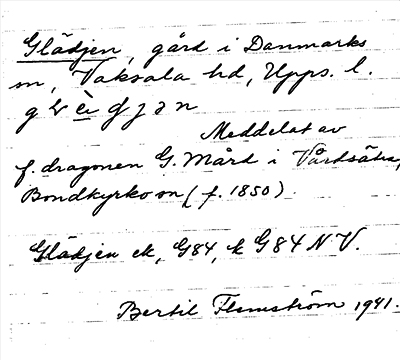 Glädjen, gård i Danmarks
sn, Vaksala hd, Upps. l.
Meddelat av
f. dragonen G. Mård i Vårdsätra,
Bondkyrko sn (f. 1850).
Glädjen ek, G84, k G84 NV.
Bertil Flemström 1941.